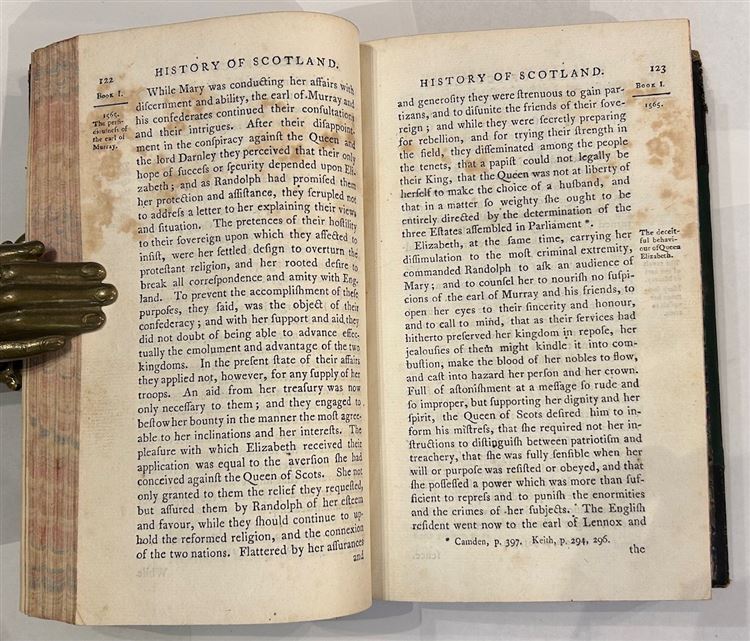 122
HISTORY OF SCOTLAND.
BOOK I.
1565.
The perni-
ciousness of
the earl of
Murray.
While Mary was conducting her affairs with
discernment and ability, the earl of Murray and
his confederates continued their consultations
and their intrigues. After their disappoint-
ment in the conspiracy against the Queen and
the lord Darnley they perceived that their only
hope of success or security depended upon Eli-
zabeth; and as Randolph had promised them
her protection and assistance, they scrupled not
to address a letter to her explaining their views
and situation. The pretences of their hostility
to their sovereign upon which they affected to
insist, were her settled design to overturn the
protestant religion, and her rooted desire to
break all correspondence and amity with Eng-
land. To prevent the accomplishment of these
purposes, they said, was the object of their
confederacy; and with her support and aid, they
did not doubt of being able to advance effec-
tually the emolument and advantage of the two
kingdoms. In the present state of their affairs
they applied not, however, for any supply of her
troops. An aid from her treasury was now
only necessary to them; and they engaged to
bestow her bounty in the manner the most agree-
able to her inclinations and her interests. The
pleasure with which Elizabeth received their
application was equal to the aversion she had
conceived against the Queen of Scots. She not
only granted to them the relief they requested,
but assured them by Randolph of her esteem
and favour, while they should continue to up-
hold the reformed religion, and the connexion
of the two nations. Flattered by her assurances
and
HISTORY OF SCOTLAND.
123
BOOK I.
1565.
and generosity they were strenuous to gain par-
tizans, and to disunite the friends of their sove-
reign; and while they were secretly preparing
for rebellion, and for trying their strength in
the field, they disseminated among the people
the tenets, that a papist could not legally be
their King, that the Queen was not at liberty of
herself to make the choice of a husband, and
that in a matter so weighty she ought to be
entirely directed by the determination of the
three Estates assembled in Parliament *.
Elizabeth, at the same time, carrying her
dissimulation to the most criminal extremity,
commanded Randolph to ask an audience of
Mary; and to counsel her to nourish no suspi-
cions of the earl of Murray and his friends, to
open her eyes to their sincerity and honour,
and to call to mind, that as their services had
hitherto preserved her kingdom in repose, her
jealousies of them might kindle it into com-
bustion, make the blood of her nobles to flow,
and cast into hazard her person and her crown.
Full of astonishment at a message so rude and
so improper, but supporting her dignity and her
spirit, the Queen of Scots desired him to in-
form his mistress, that she required not her in-
structions to distinguish between patriotism and
treachery, that she was fully sensible when her
will or purpose was resisted or obeyed, and that
she possessed a power which was more than suf-
ficient to repress and to punish the enormities
and the crimes of her subjects. The English
resident went now to the earl of Lennox and
The deceit-
ful behavi-
our of Queen
Elizabeth.
* Camden, p. 397. Keith, p. 294, 296.
the